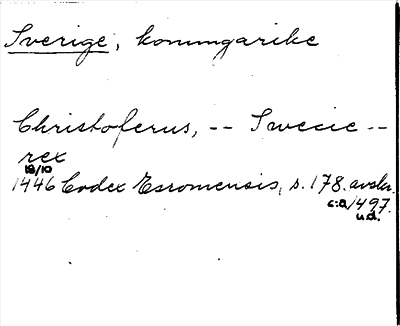 Sverige, konungarike
Christoferus, -- Swecie --
rex
18/10
1446 Codex Esromensis, s. 178. avskr.
c:a 1497.
u.d.